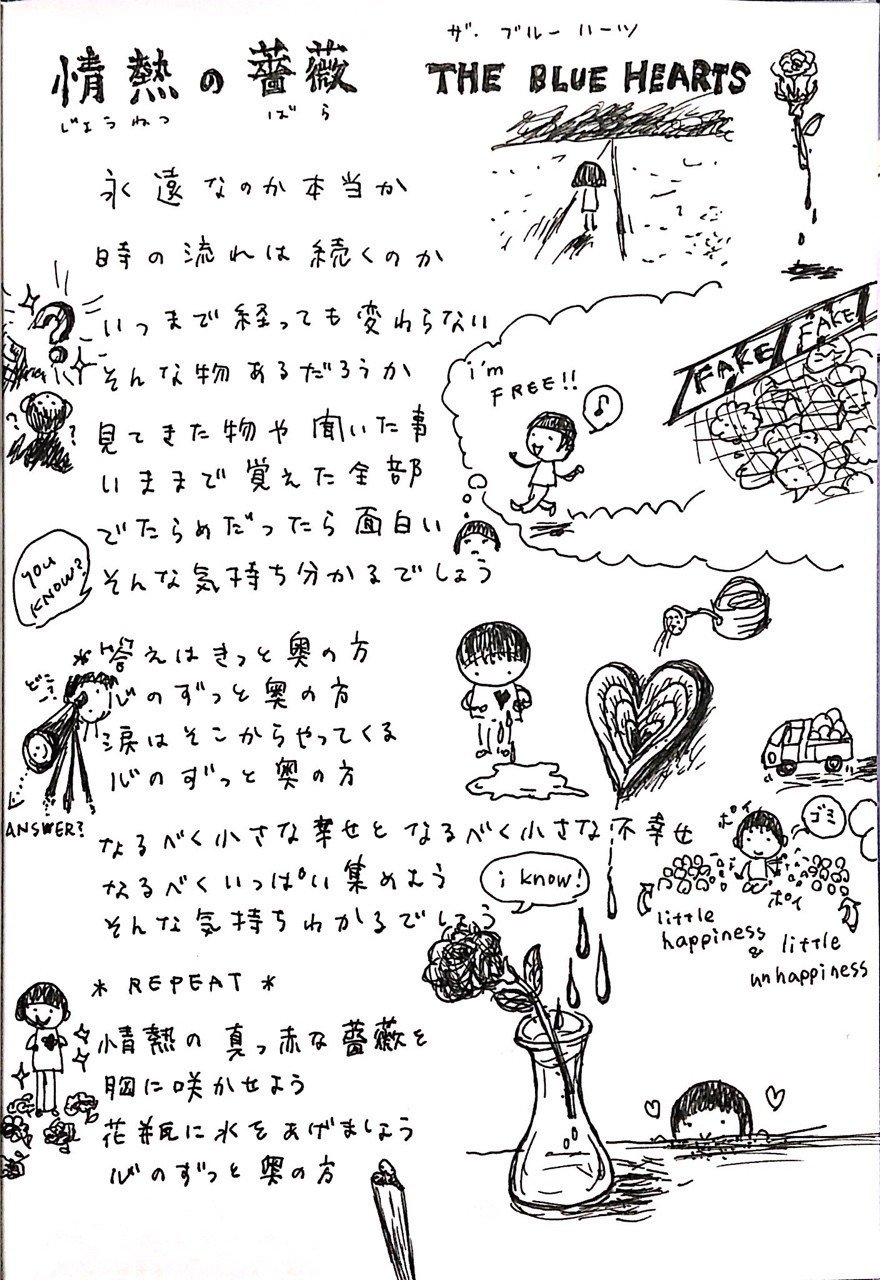 ザ・ブルーハーツ
情熱の薔薇 THE BLUE HEARTS
じょうねつ ばら
永遠なのか本当か
時の流れは続くのか
いつまで経っても変わらない
そんな物あるだろうか
見てきた物や聞いた事
いままで覚えた全部
でたらめだったら面白い
そんな気持ち分かるでしょう
?
? ?
i'm
FREE!!
♪
FAKE FAKE
YOU
KNOW?
*答えはきっと奥の方
心のずっと奥の方
涙はそこからやってくる
心のずっと奥の方
どこ?
ANSWER?
なるべく小さな幸せと なるべく小さな不幸せ
なるべくいっぱい集めよう
そんな気持ちわかるでしょう
i know!
ポイ
ゴミ
ポイ
little
happiness
& little
unhappiness
* REPEAT *
情熱の真っ赤な薔薇を
胸に咲かせよう
花瓶に水をあげましょう
心のずっと奥の方